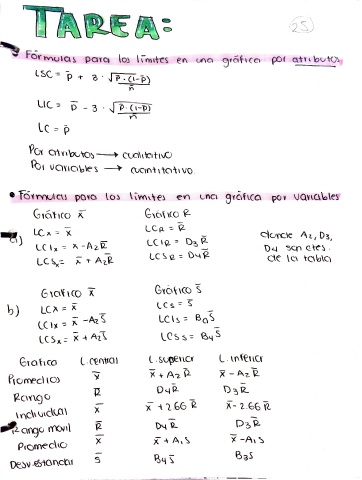 TAREA:
25
Fórmulas para los límites en una gráfica por atributos
LSC = p̄ + 3 · √p̄·(1-p̄)/n̄
LIC = p̄ - 3 · √p̄·(1-p̄)/n̄
LC = p̄
Por atributos → cualitativo
Por variables → cuantitativo.
• Fórmulas para los límites en una gráfica por variables
Gráfico x̄ Gráfico R
a) LCx = x̄ LCR = R̄ donde A2, D3,
LCIx = x̄ - A2R̄ LCIR = D3R̄ D4 son ctes.
LCSx = x̄ + A2R̄ LCSR = D4R̄ de la tabla
Gráfico x̄ Gráfico S̄
b) LCx = x̄ LCs = s̄
LCIx = x̄ - A3s̄ LCIs = B3s̄
LCSx = x̄ + A3s̄ LCSs = B4s̄
Grafica L.central L.superior L.inferior
Promedios x̄ x̄ + A2R̄ x̄ - A2R̄
Rango R̄ D4R̄ D3R̄
Individual x̄ x̄ + 2.66 R̄ x̄ - 2.66 R̄
Rango movil R̄ D4R̄ D3R̄
Promedio x̄ x̄ + A1S x̄ - A1S
Desv estandar s̄ B4s̄ B3s